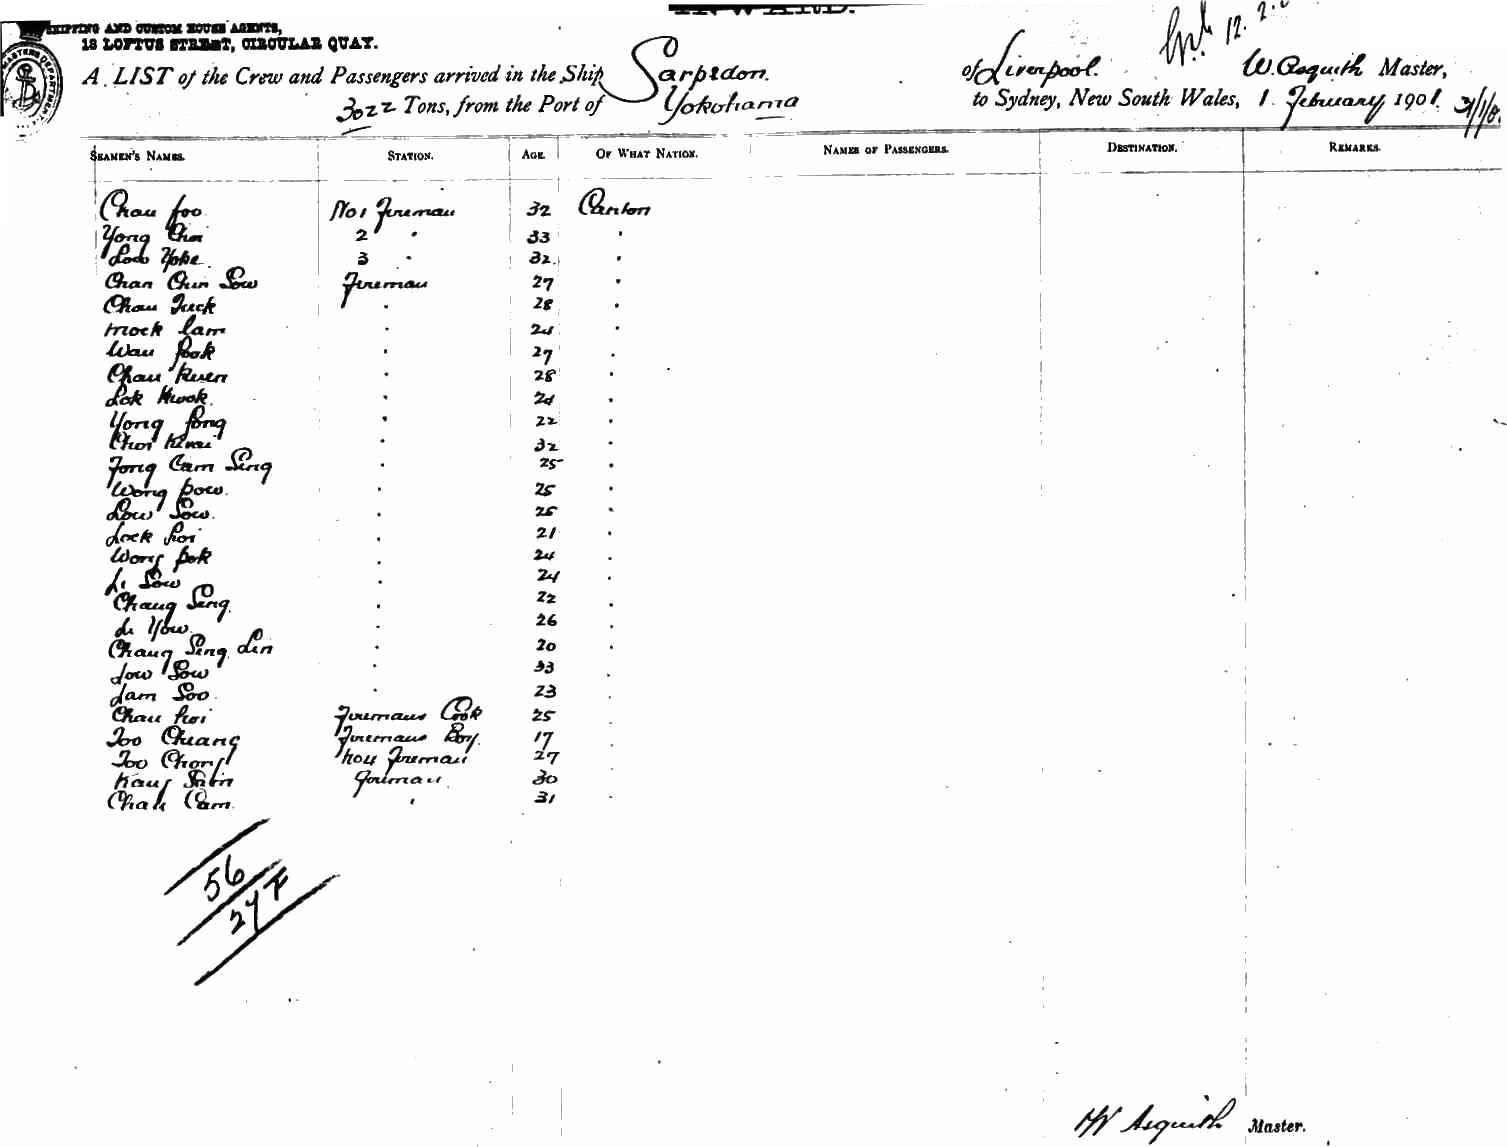 SHIPPING AND CUSTOM HOUSE AGENTS,
18 LOFTUS STREET, CIRCULAR QUAY.
12. 2.
A LIST of the Crew and Passengers arrived in the Ship Sarpedon. of Liverpool. W. Asquith Master,
3022 Tons, from the Port of Yokohama to Sydney, New South Wales, 1 February 1901.
SEAMEN'S NAMES. STATION. AGE. OF WHAT NATION. NAMES OF PASSENGERS. DESTINATION. REMARKS.
Chau foo No 1 Fireman 32 Canton
Yong Choi 2 " 33 "
Yoke 3 " 32 "
Chan Chun Sow Fireman 27 "
Chau Tuck " 28 "
Mock Lam " 24 "
Wau fook " 27 "
Chau Kuen " 28 "
Lok Kwok " 24 "
Yong fong " 22 "
Choi " 32 "
Fong Cam Sing " 25 "
Wong pow " 25 "
Low Sow " 25 "
Lock hoi " 21 "
Wong pok " 24 "
Li Sow " 24 "
Chaug Sing " 22 "
Li Yow " 26 "
Chaug Sing Lin " 20 "
Low Sow " 33 "
Lam Soo " 23 "
Chau hoi Firemans Cook 25 "
Too Chuang Firemans Boy 17 "
Too Chong Fireman 27 "
Fireman 30 "
Cam " 31 "
56
27 F
HW Asquith Master.